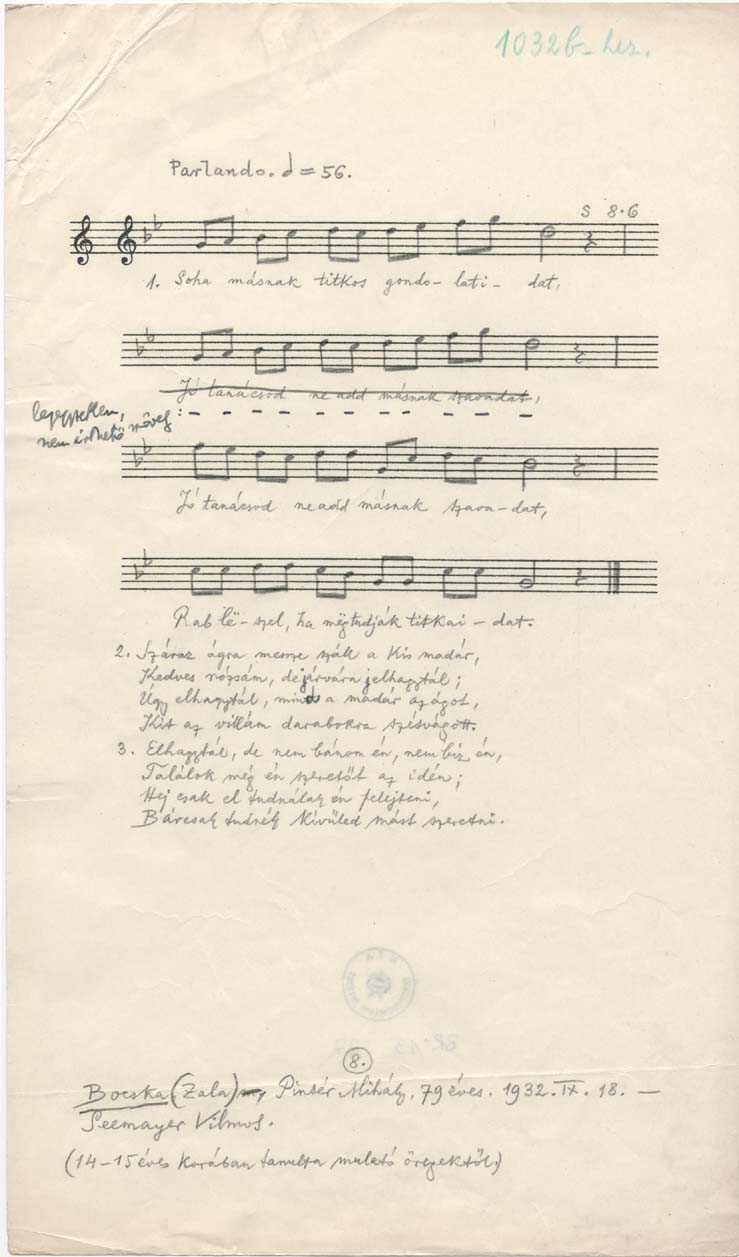 1032b-
Parlando. = 56.
S 8.6
1. Soha másnak titkos gondo-lati-dat,
Jó tanácsod ne add másnak szavadat,
nem érthető szöveg :
Jó tanácsod ne add másnak szava-dat,
Rab lë-szel, ha mëgtudják titkai-dat.
2. Száraz ágra messze száll a kis madár,
Kedves rózsám, de jelhagytál;
Úgy elhagytál, mind a madár az ágot,
Kit az villám darabokra szétvágott.
3. Elhagytál, de nem bánom én, nem biz én,
Találok még én szeretőt az idén;
Hej csak el tudnálak én felejteni,
Bárcsak tudnék kívüled mást szeretni.
8.
Bocska (Zala) Pintér Mihály, 79 éves. 1932. IX. 18. —
Seemayer Vilmos.
(14-15 éves korában tanulta mulató öregektől.)